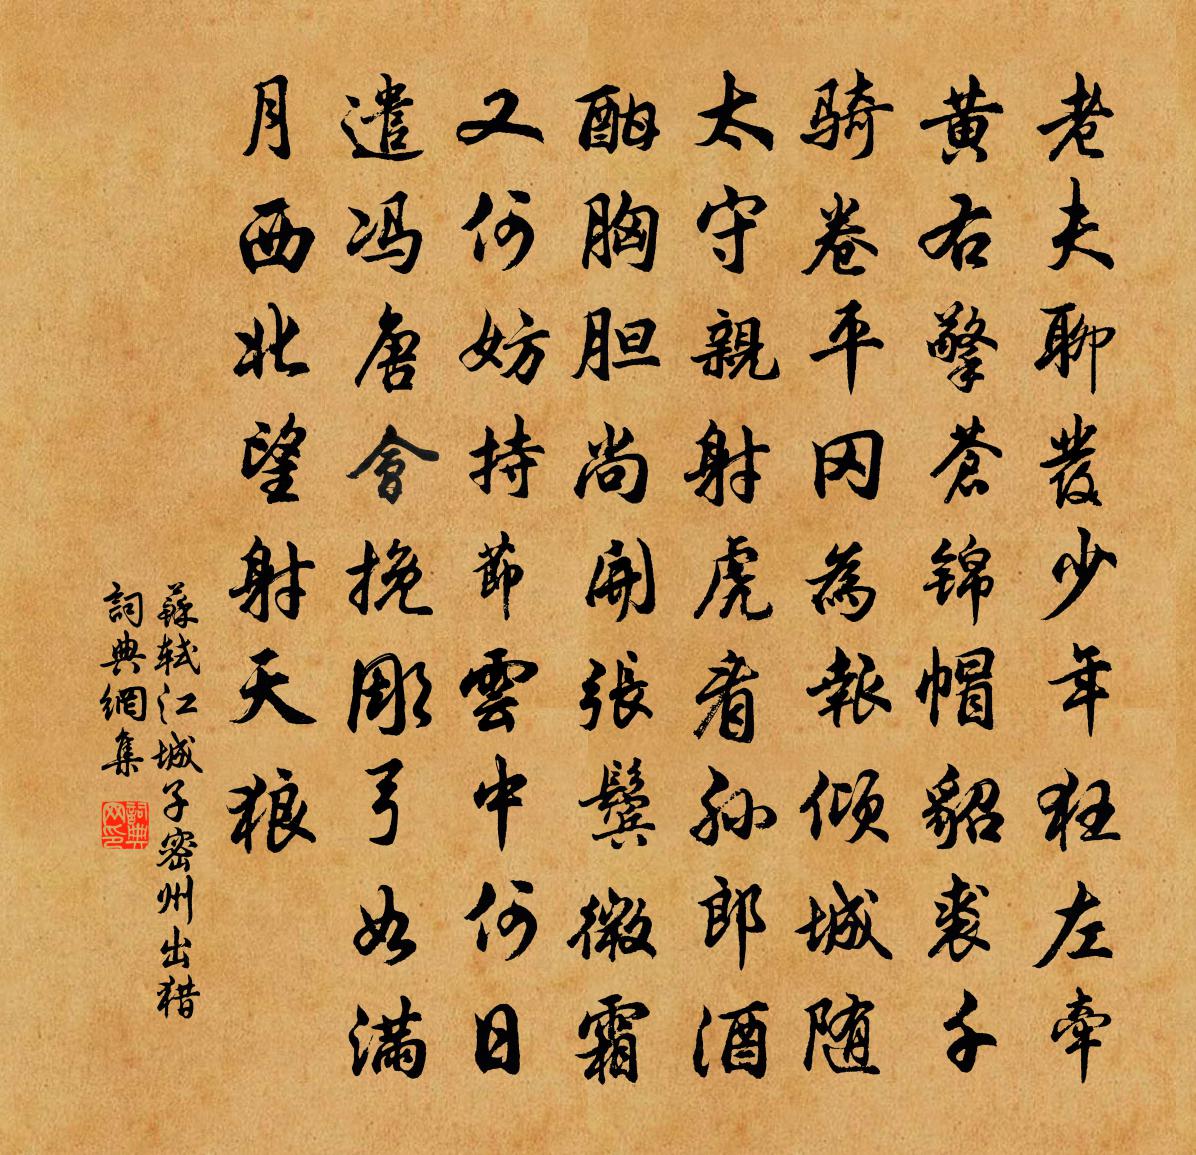 老夫聊發少年狂左牽
黃右擎蒼錦帽貂裘千
騎卷平冈為報傾城随
太守親射虎看孙郎酒
酣胸胆尚開張鬓微霜
又何妨持節雲中何日
遣冯唐會挽彫弓如满
月西北望射天狼
蘇轼江城子密州出猎
詞典網集
詞典网印